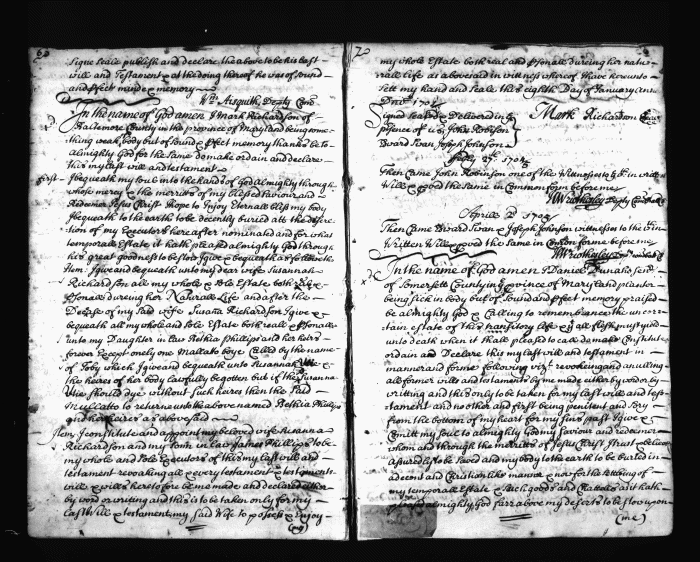 69
Signe seale publish and declare the above to be his last
will and Testament & at the doing thereof he was of sound
and pfect minde & memory
Wm Aisquith Depty Com
In the name of God amen I Mark Richardson of
Baltemore County in the province of Maryland being some-
thing weak body but of sound & pfect memory thanks be to
almighty God for the same do make ordain and declare
this my last will and testament
first I bequeath my soule into the hands of God almighty through
whose mercy & the merrits of my blessed saviour and
Redeemer Jesus Christ I hope to Injoy Eternall bliss my body
I bequeath to the earth to be decently buried att the discre-
tion of my Executors hereafter nominated and for what
temporall Estate it hath pleased almighty God through
his great goodness to bestow I give & bequeath as followeth
Item I give and bequeath unto my dear wife Susanna
Richardson all my whole & sole Estate both
psonall dureing her Naturall Life and after the
Decease of my said wife Susana Richardson I give &
bequeath all my whole and sole Estate both reall & psonall
unto my Daughter in law Bethia Phillips and her heirs
forever Except onely one Mallato boye Called by the name
of Toby which I give and bequeath unto Susanna
the heires of her body lawfully begotten but if the Susanna
should dye without such heires then the said
Mullatto to returne unto the above named Bethia Philips
and her heires as abovesaid
Item I constitute and appoint my beloved wife Susanna
Richardson and my sonn in law James Phillips to be
my whole and sole Executors of this my last will and
testament revoaking all & every testament & testaments
will & wills heretofore be me made and declared either
by word or writing and this is to be taken only for my
last Will & testament my said Wife to possess & Enjoy
(my)
70
my whole Estate both real and psonall dureing her natu-
rall life as abovesaid in witness whereof I have hereunto
sett my hand and seale this eighth Day of January Anno
Dni 1704
Signed sealed & Delivered in
psence of us John Robison
Edward Swan Joseph Johnson
Mark Richardson
27th 1704
Then Came John Robinson one of the Witnesses to the within written
Will & pved the same in Common form before me
Wrothesley Depty Com
Aprill 1705
Then Came Edward Swan & Joseph Johnson wittnesses to the within
Written Will & pved the same in Comon forme before me
Wrothesley
In the name of God amen I Daniel
of Somersett County in province of Maryland planter
being sick in body but of Sound and pfect memory praised
be almighty God & Calling to remembrance the uncer-
tain estate of this transitory life & all flesh must yield
unto death when it shall please to call do make Constitute
ordain and Declare this my last will and testament in
manner and forme following vizt. revokeing and anulling
all former wills and testaments by me made either by word or by
writting and this only to be taken for my last will and tes-
tament and no other and first being penitent and sory
from the bottom of my heart for my sins past I give &
Comitt my soul to almighty God my saviour and redeemer
whom and through the merrits of Jesus Christ I trust & believe
assuredly to be saved and my body to the earth to be buried in
a decent and Christian like manner & now for the settleing of
my temporall Estate & such goods and Chatteles as it hath
pleased almighty God farr above my deserts to bestow upon
(me)